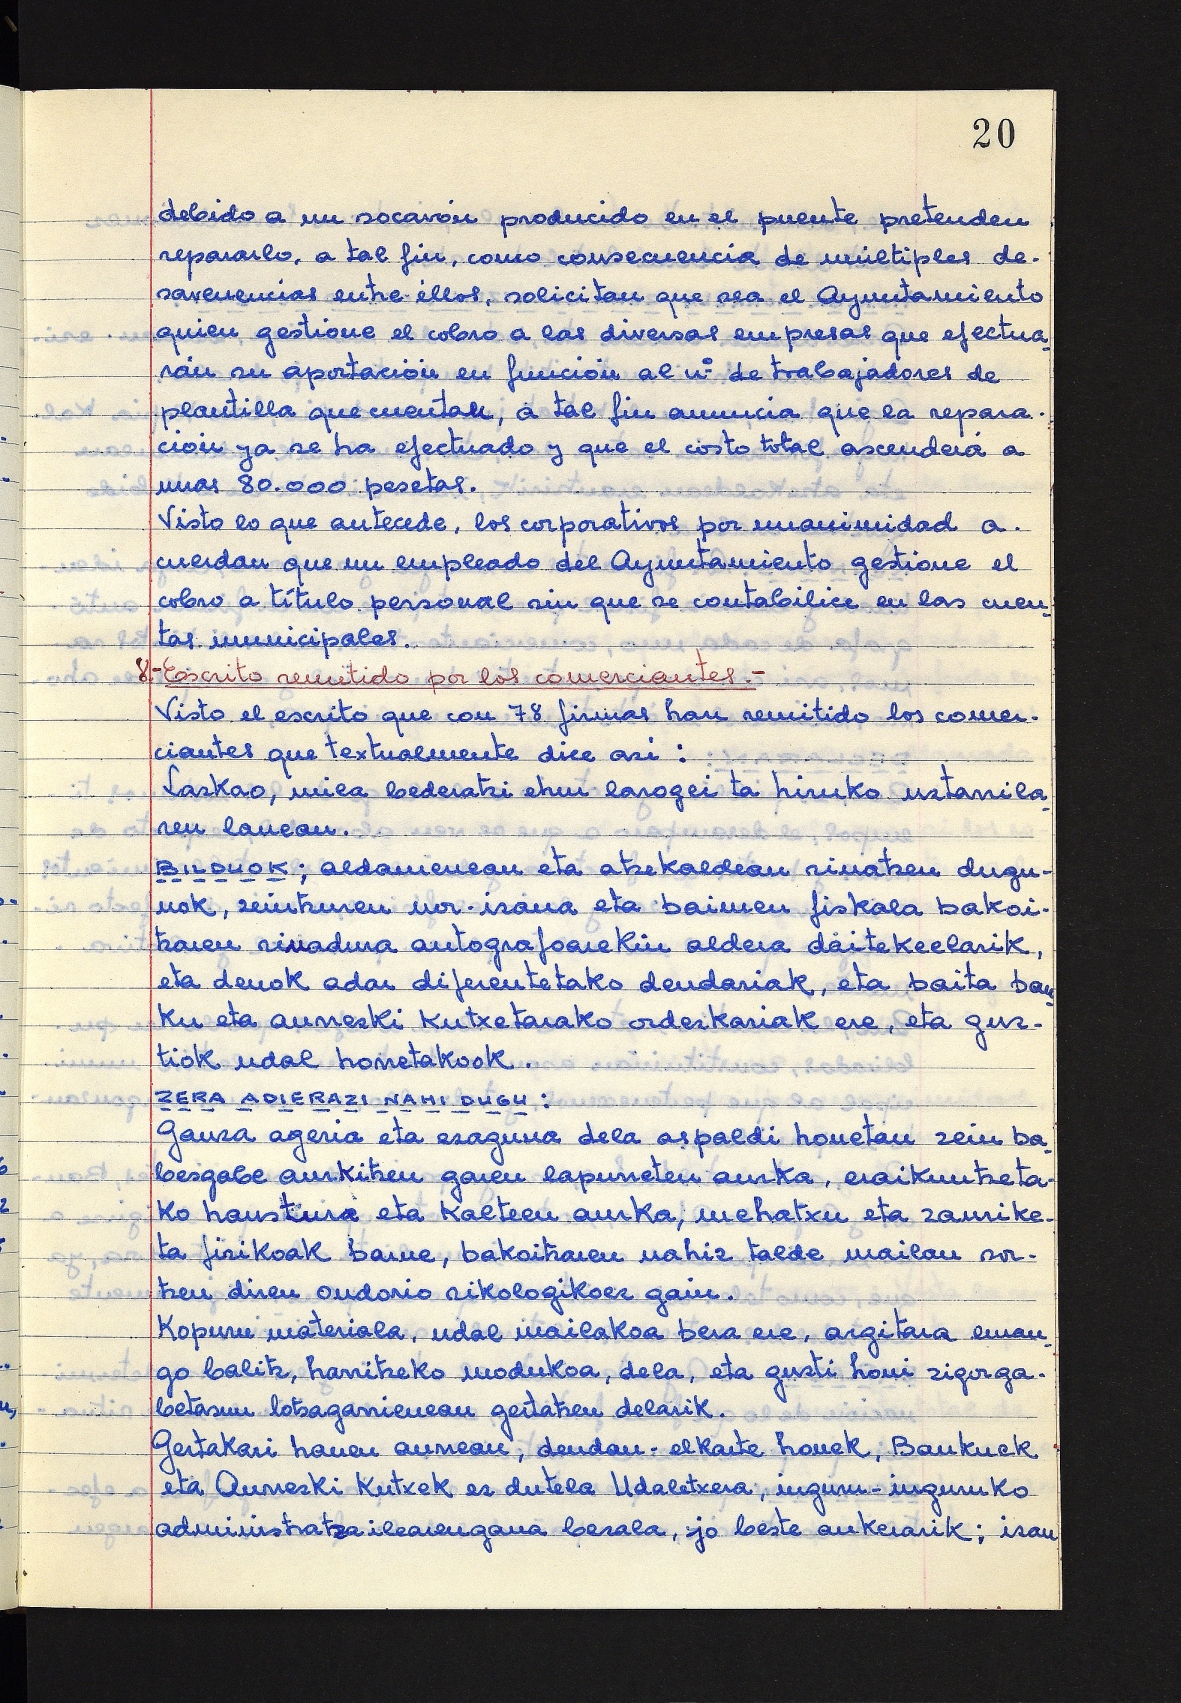 20
debido a un socavón producido en el puente pretenden
repararlo, a tal fin, como consecuencia de múltiples de-
savenencias entre éllos, solicitan que sea el Ayuntamiento
quien gestione el cobro a las diversas empresas que efectua-
rán su aportación en función al nº de trabajadores de
plantilla que cuentan, a tal fin anuncia que la repara-
ción ya se ha efectuado y que el costo total ascenderá a
unas 80.000 pesetas.
Visto lo que antecede, los corporativos por unanimidad a-
cuerdan que un empleado del Ayuntamiento gestione el
cobro a título personal sin que se contabilice en las cuen-
tas municipales.
8.- Escrito remitido por los comerciantes.-
Visto el escrito que con 78 firmas han remitido los comer-
ciantes que textualmente dice asi:
Lazkao, mila bederatzi ehun larogei ta hiruko uztarrila-
ren lauean.
BILDUOK; aldamenean eta atzekaldean sinatzen dugu-
nok, zeintzuen nor-izana eta baimen fiskala bakoi-
tzaren sinadura autografoarekin aldera daitekeelarik,
eta denok adar diferentetako dendariak, eta baita ban-
ku eta aurrezki kutxetarako ordezkariak ere, eta guz-
tiok udal honetakook.
ZERA ADIERAZI NAHI DUGU:
Gauza ageria eta ezaguna dela aspaldi honetan zein ba-
besgabe aurkitzen garen lapurreten aurka, eraikuntzeta-
ko haustura eta kalteen aurka, mehatxu eta zaurike-
ta fisikoak barne, bakoitzaren nahiz talde mailan sor-
tzen diren ondorio sikologikoez gain.
Kopuru materiala, udal mailakoa bera ere, argitara eman-
go balitz, harritzeko modukoa, dela, eta guzti honi zigorga-
betasun lotsagarrienean gertatzen delarik.
Gertakari hauen aurrean, dendan-elkarte honek, Bankuek
eta Aurrezki Kutxek ez dutela Udaletxera, inguru-inguruko
administratzailearengana bezala, jo beste aukerarik; izan